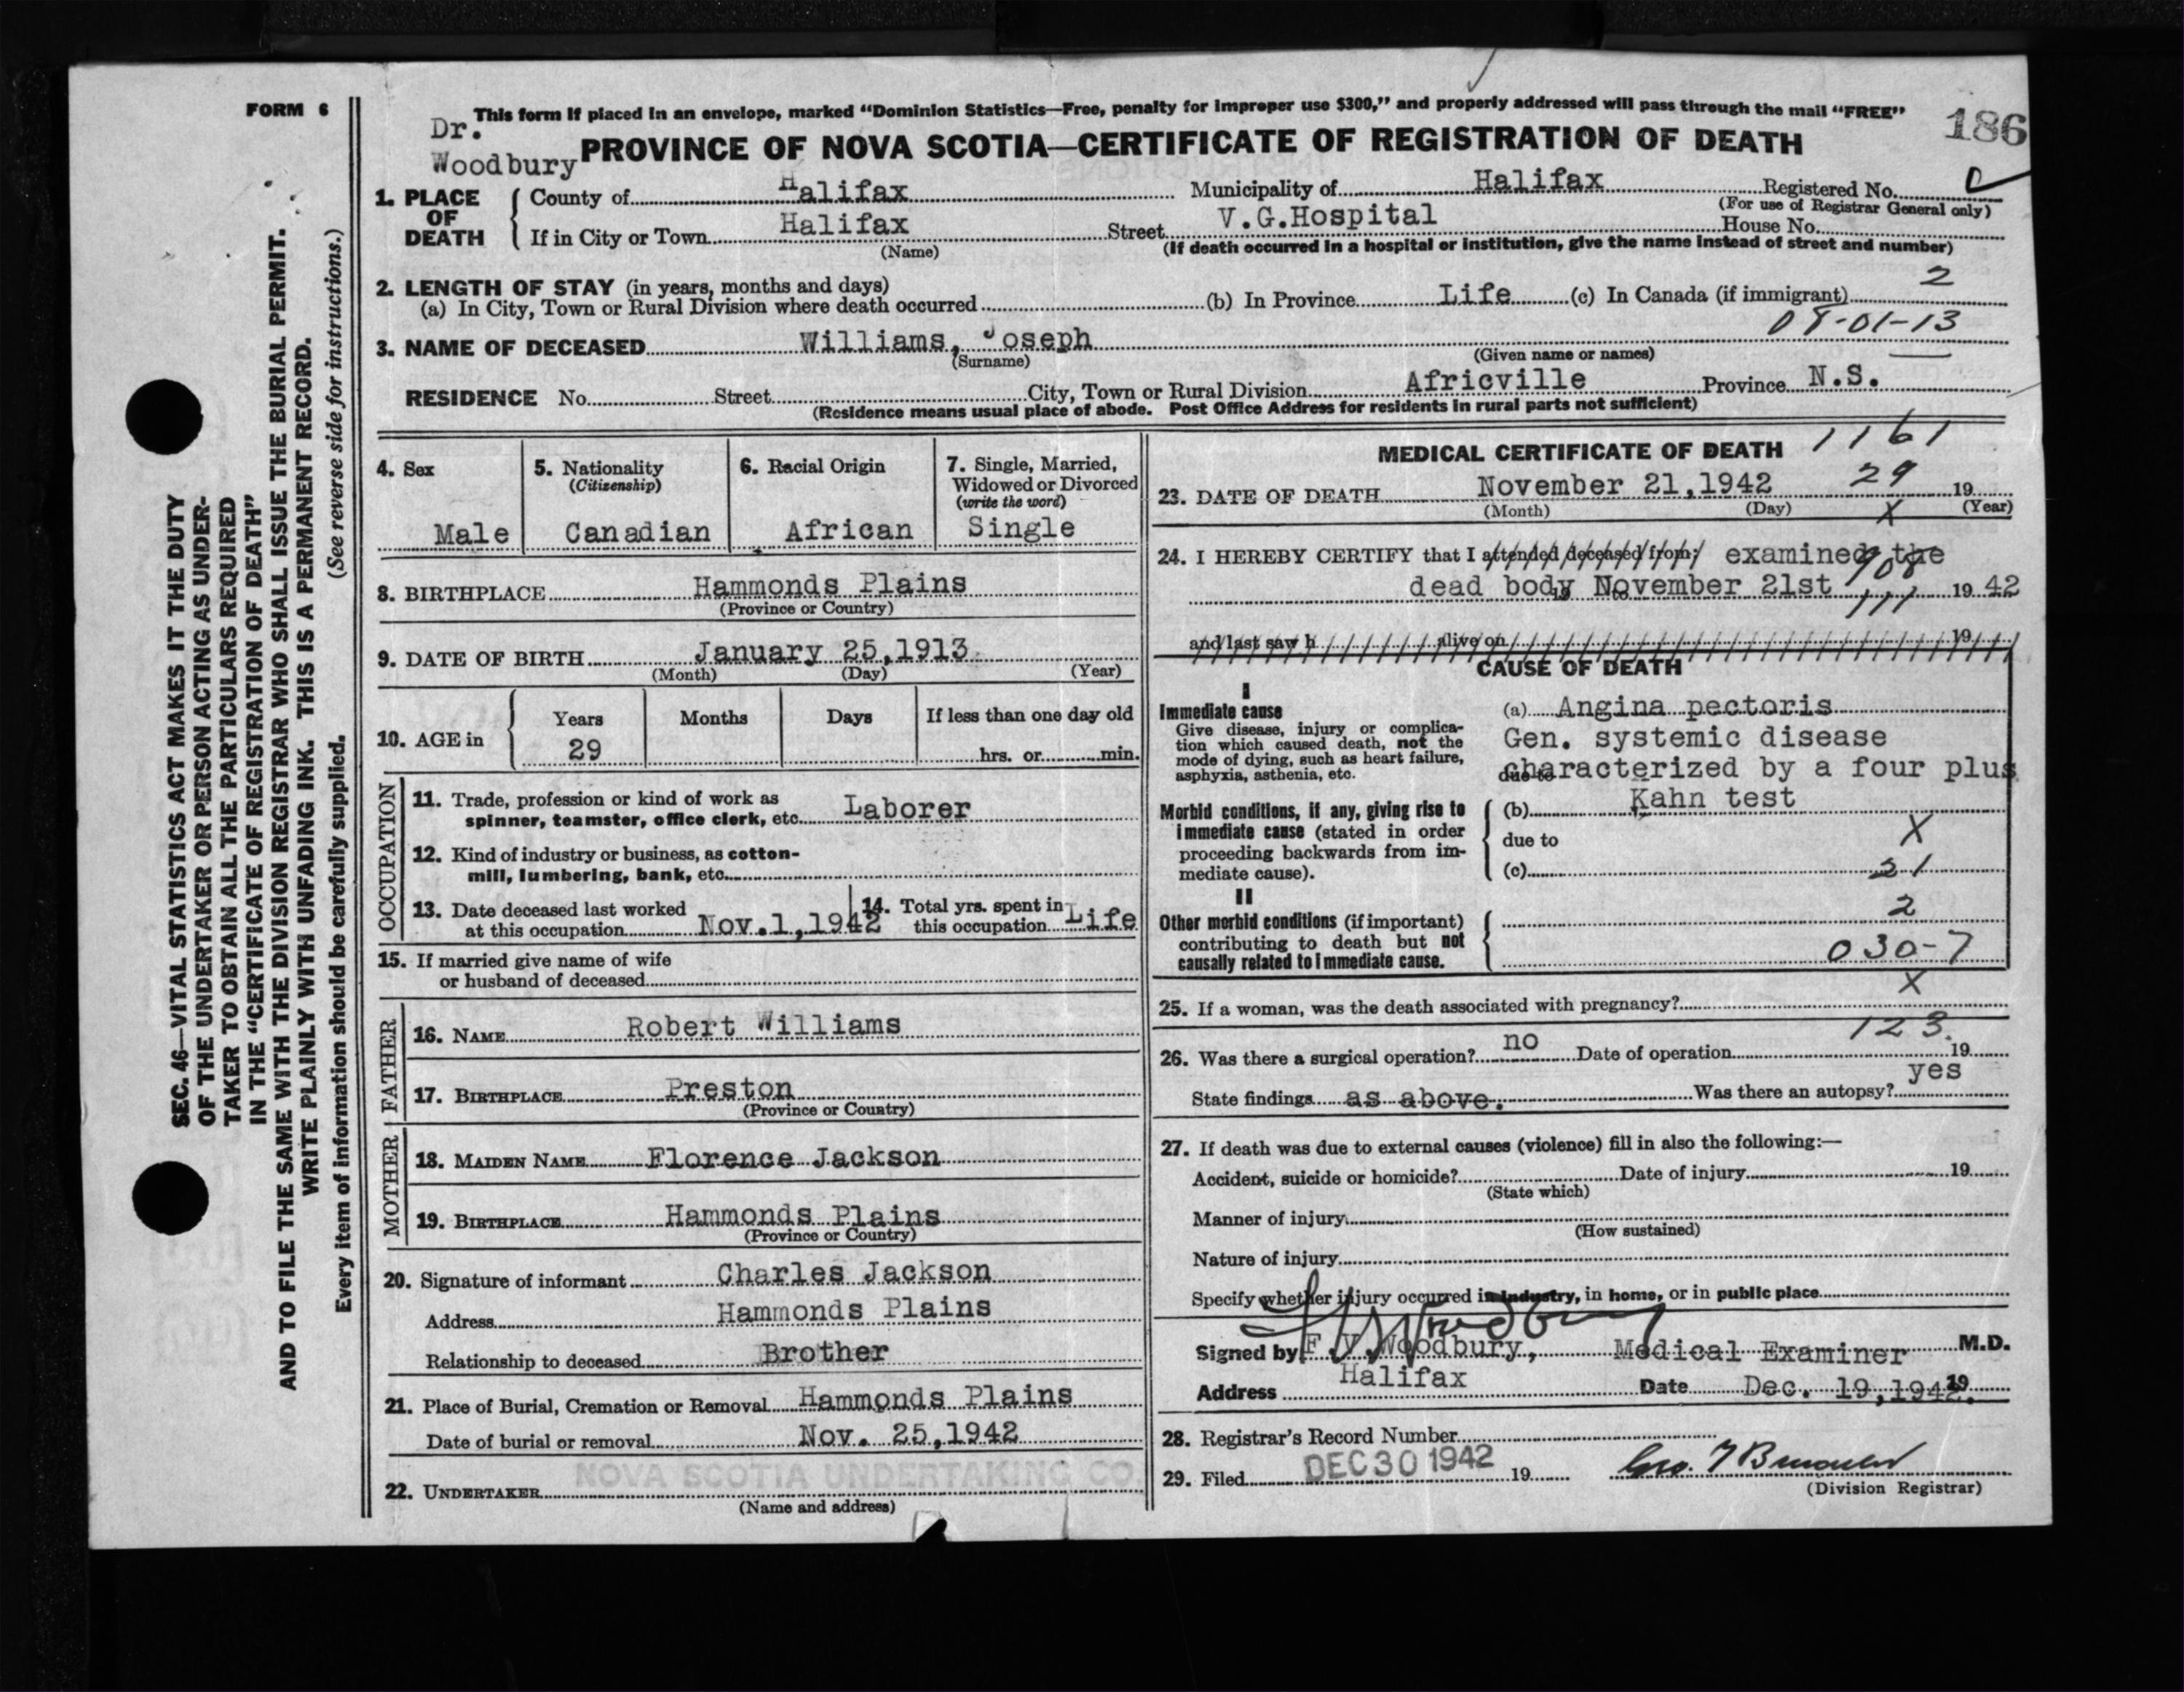 FORM 6
This form if placed in an envelope, marked “Dominion Statistics—Free, penalty for improper use $300,” and properly addressed will pass through the mail “FREE”
186
Dr.
Woodbury
PROVINCE OF NOVA SCOTIA—CERTIFICATE OF REGISTRATION OF DEATH
1. PLACE OF DEATH
County of Halifax Municipality of Halifax Registered No.
(For use of Registrar General only)
If in City or Town Halifax Street V.G.Hospital House No.
(Name) (If death occurred in a hospital or institution, give the name instead of street and number)
2. LENGTH OF STAY (in years, months and days) 2
(a) In City, Town or Rural Division where death occurred (b) In Province Life (c) In Canada (if immigrant)
3. NAME OF DECEASED Williams, Joseph
(Surname) (Given name or names)
RESIDENCE No. Street City, Town or Rural Division Africville Province N.S.
(Residence means usual place of abode. Post Office Address for residents in rural parts not sufficient)
4. Sex
Male
5. Nationality
(Citizenship)
Canadian
6. Racial Origin
African
7. Single, Married,
Widowed or Divorced
(write the word)
Single
8. BIRTHPLACE Hammonds Plains
(Province or Country)
9. DATE OF BIRTH January 25,1913
(Month) (Day) (Year)
10. AGE in
Years Months Days If less than one day old
29 hrs. or min.
OCCUPATION
11. Trade, profession or kind of work as
spinner, teamster, office clerk, etc. Laborer
12. Kind of industry or business, as cotton-
mill, lumbering, bank, etc.
13. Date deceased last worked
at this occupation Nov.1,1942
14. Total yrs. spent in
this occupation Life
15. If married give name of wife
or husband of deceased
FATHER
16. NAME Robert Williams
17. BIRTHPLACE Preston
(Province or Country)
MOTHER
18. MAIDEN NAME Florence Jackson
19. BIRTHPLACE Hammonds Plains
(Province or Country)
20. Signature of informant Charles Jackson
Address Hammonds Plains
Relationship to deceased Brother
21. Place of Burial, Cremation or Removal Hammonds Plains
Date of burial or removal Nov. 25,1942
NOVA SCOTIA UNDERTAKING CO.
22. UNDERTAKER
(Name and address)
MEDICAL CERTIFICATE OF DEATH 1161
23. DATE OF DEATH November 21,1942 29 19
(Month) (Day) X (Year)
24. I HEREBY CERTIFY that I attended deceased from: examined the
908
dead body November 21st 19 42
111
and last saw h alive on 19
CAUSE OF DEATH
I
Immediate cause
Give disease, injury or complica-
tion which caused death, not the
mode of dying, such as heart failure,
asphyxia, asthenia, etc.
(a) Angina pectoris
Gen. systemic disease
due to
characterized by a four plus
Morbid conditions, if any, giving rise to
immediate cause (stated in order
proceeding backwards from im-
mediate cause).
(b) Kahn test
due to X
(c) 21
II
Other morbid conditions (if important)
contributing to death but not
causally related to immediate cause.
2
030-7
X
25. If a woman, was the death associated with pregnancy?
123
26. Was there a surgical operation? no Date of operation 19
State findings as above. Was there an autopsy? yes
27. If death was due to external causes (violence) fill in also the following:—
Accident, suicide or homicide? Date of injury 19
(State which)
Manner of injury
(How sustained)
Nature of injury
Specify whether injury occurred in industry, in home, or in public place
Signed by F. V. Woodbury, Medical Examiner M.D.
Address Halifax Date Dec. 19,1942. 19
28. Registrar's Record Number
29. Filed DEC 30 1942 19
(Division Registrar)
SEC. 46—VITAL STATISTICS ACT MAKES IT THE DUTY
OF THE UNDERTAKER OR PERSON ACTING AS UNDER-
TAKER TO OBTAIN ALL THE PARTICULARS REQUIRED
IN THE “CERTIFICATE OF REGISTRATION OF DEATH”
AND TO FILE THE SAME WITH THE DIVISION REGISTRAR WHO SHALL ISSUE THE BURIAL PERMIT.
WRITE PLAINLY WITH UNFADING INK. THIS IS A PERMANENT RECORD.
(See reverse side for instructions.)
Every item of information should be carefully supplied.